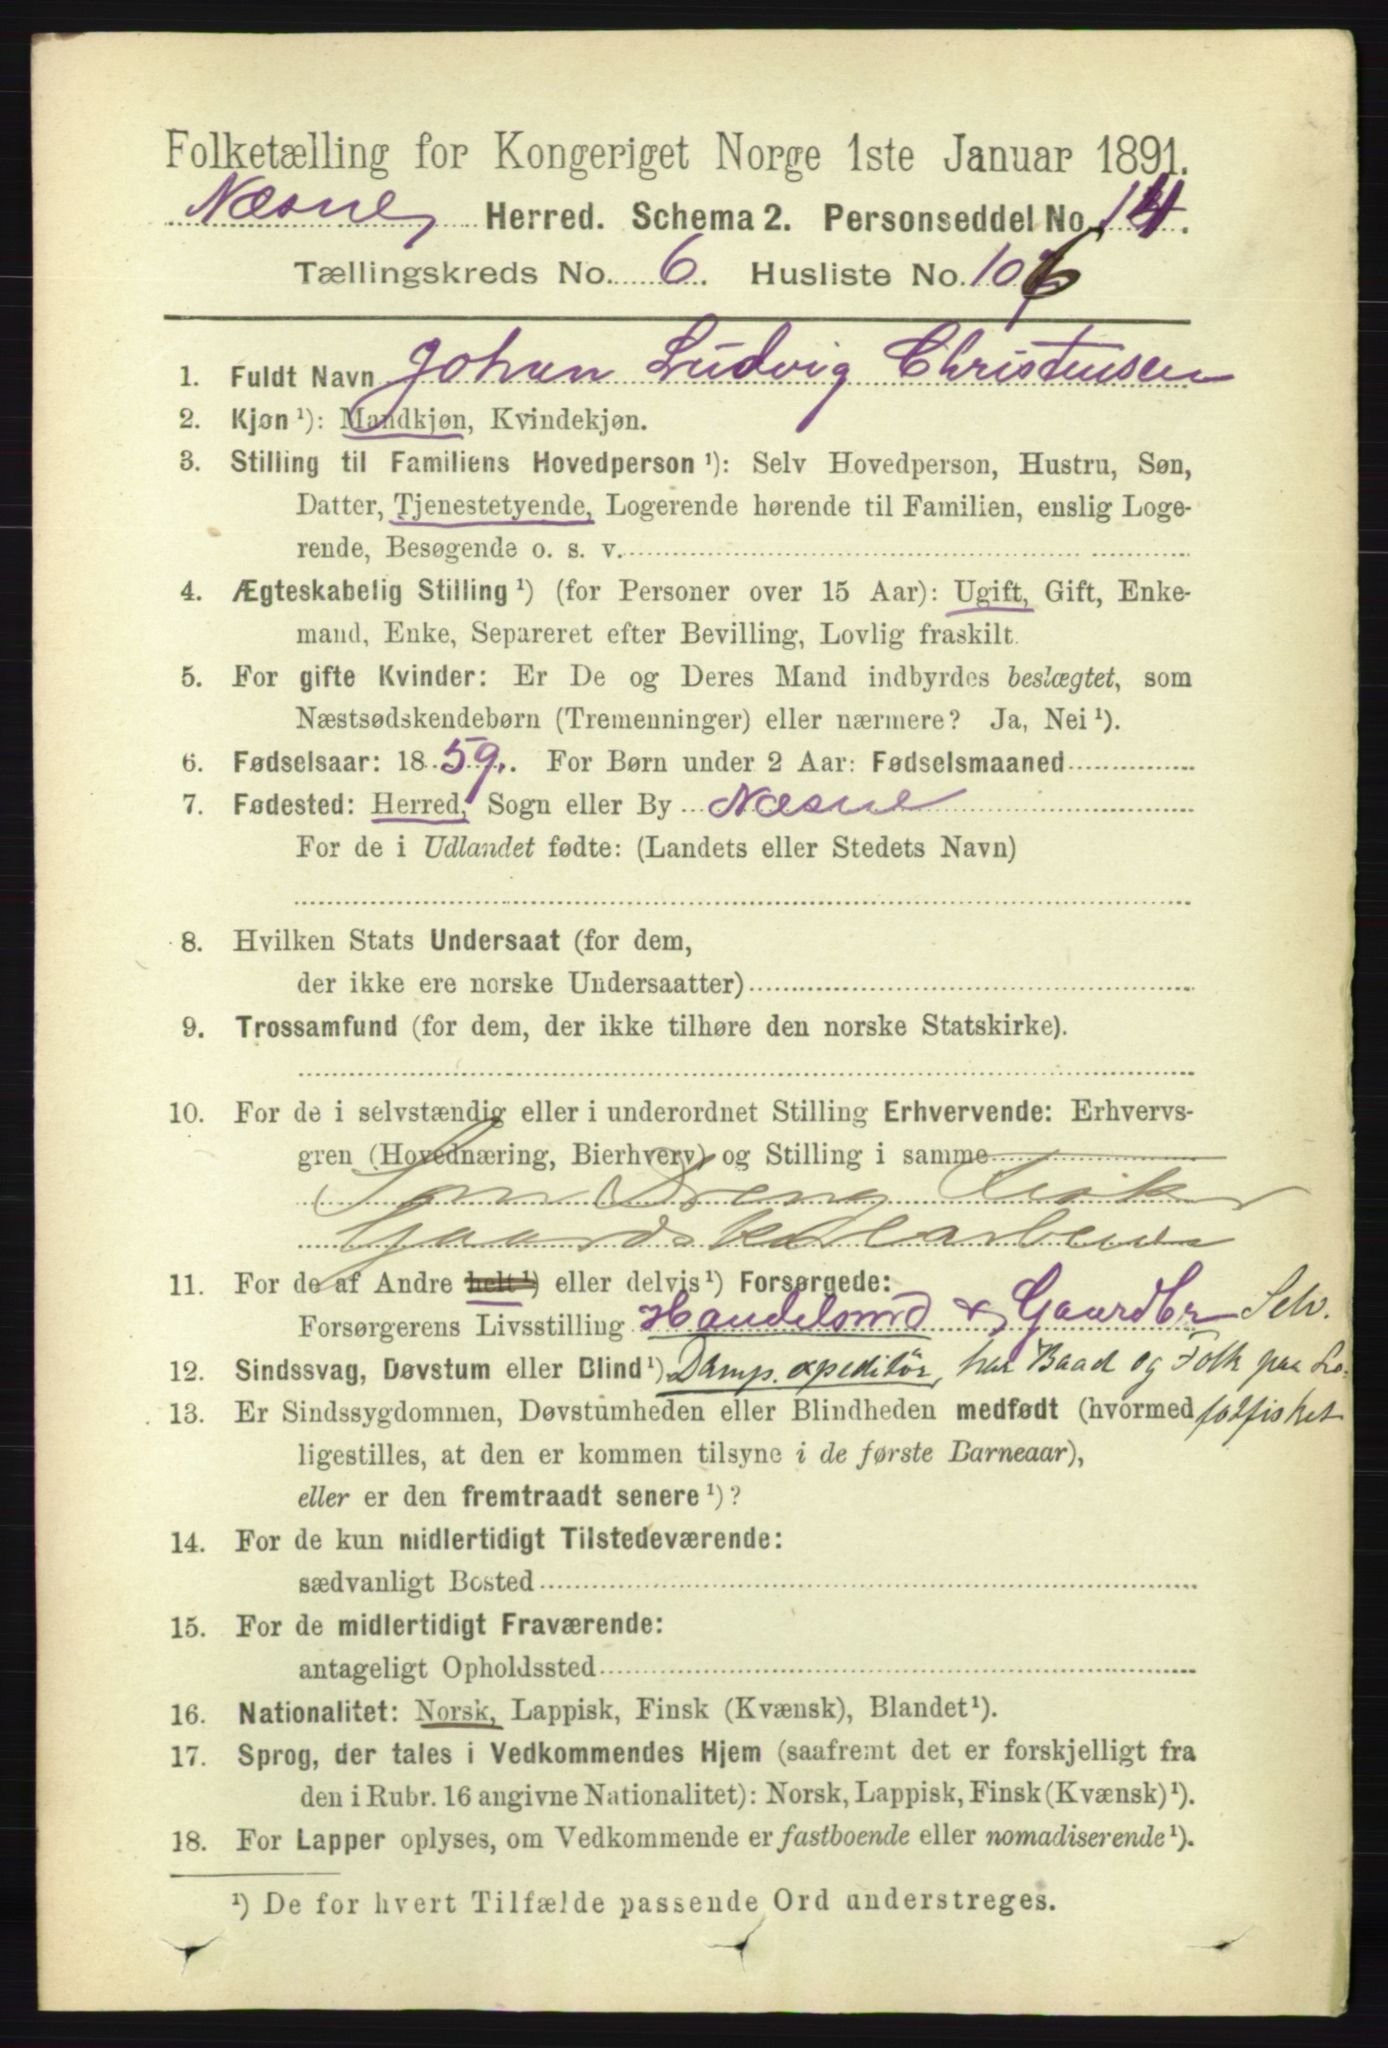 Folketælling for Kongeriget Norge 1ste Januar 1891.
Næsne Herred. Schema 2. Personseddel No. 14.
Tællingskreds No. 6. Husliste No. 106
1. Fuldt Navn Johan Ludvig Christensen
2. Kjøn ¹): Mandkjøn, Kvindekjøn.
3. Stilling til Familiens Hovedperson ¹): Selv Hovedperson, Hustru, Søn,
Datter, Tjenestetyende, Logerende hørende til Familien, enslig Loge-
rende, Besøgende o. s. v.
4. Ægteskabelig Stilling ¹) (for Personer over 15 Aar): Ugift, Gift, Enke-
mand, Enke, Separeret efter Bevilling, Lovlig fraskilt.
5. For gifte Kvinder: Er De og Deres Mand indbyrdes beslægtet, som
Næstsødskendebørn (Tremenninger) eller nærmere? Ja, Nei ¹).
6. Fødselsaar: 1859. For Børn under 2 Aar: Fødselsmaaned
7. Fødested: Herred, Sogn eller By Næsne
For de i Udlandet fødte: (Landets eller Stedets Navn)
8. Hvilken Stats Undersaat (for dem,
der ikke ere norske Undersaatter)
9. Trossamfund (for dem, der ikke tilhøre den norske Statskirke).
10. For de i selvstændig eller i underordnet Stilling Erhvervende: Erhvervs-
gren (Hovednæring, Bierhverv) og Stilling i samme
Som Dreng Fisker
Gaards
11. For de af Andre helt ¹) eller delvis ¹) Forsørgede:
Forsørgerens Livsstilling Handelsmd & Gaardbr Selv.
12. Sindssvag, Døvstum eller Blind ¹) Damp.expeditör, har Baad og Folk paa Lo-
13. Er Sindssygdommen, Døvstumheden eller Blindheden medfødt (hvormed fotfisket
ligestilles, at den er kommen tilsyne i de første Barneaar),
eller er den fremtraadt senere ¹)?
14. For de kun midlertidigt Tilstedeværende:
sædvanligt Bosted
15. For de midlertidigt Fraværende:
antageligt Opholdssted
16. Nationalitet: Norsk, Lappisk, Finsk (Kvænsk), Blandet ¹).
17. Sprog, der tales i Vedkommendes Hjem (saafremt det er forskjelligt fra
den i Rubr. 16 angivne Nationalitet): Norsk, Lappisk, Finsk (Kvænsk) ¹).
18. For Lapper oplyses, om Vedkommende er fastboende eller nomadiserende ¹).
¹) De for hvert Tilfælde passende Ord understreges.